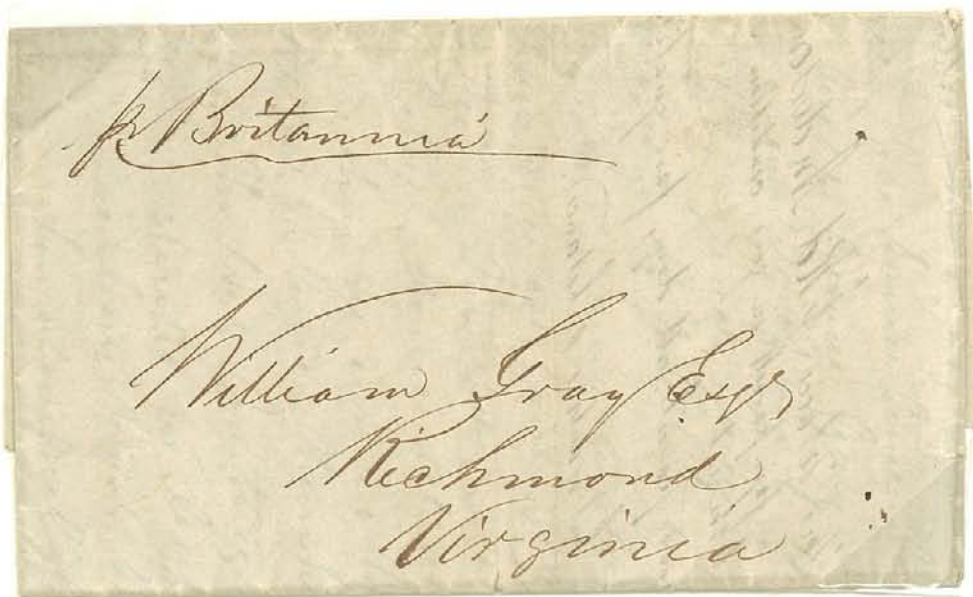 p Britannia
William Gray Esqr
Richmond
Virginia